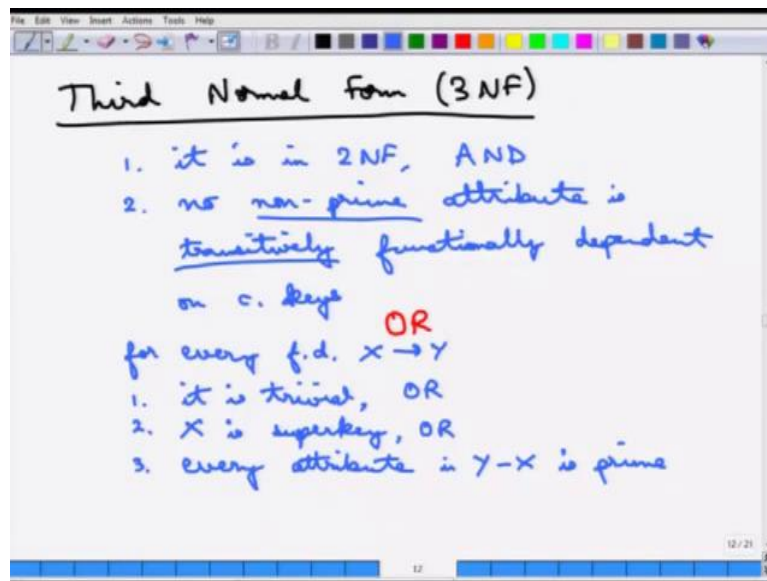 File Edit View Insert Actions Tools Help
Third Normal Form (3NF)
1. it is in 2NF, AND
2. no non-prime attribute is
transitively functionally dependent
on c. keys
OR
for every f.d. X → Y
1. it is trivial, OR
2. X is superkey, OR
3. every attribute in Y-X is prime
12/21
12